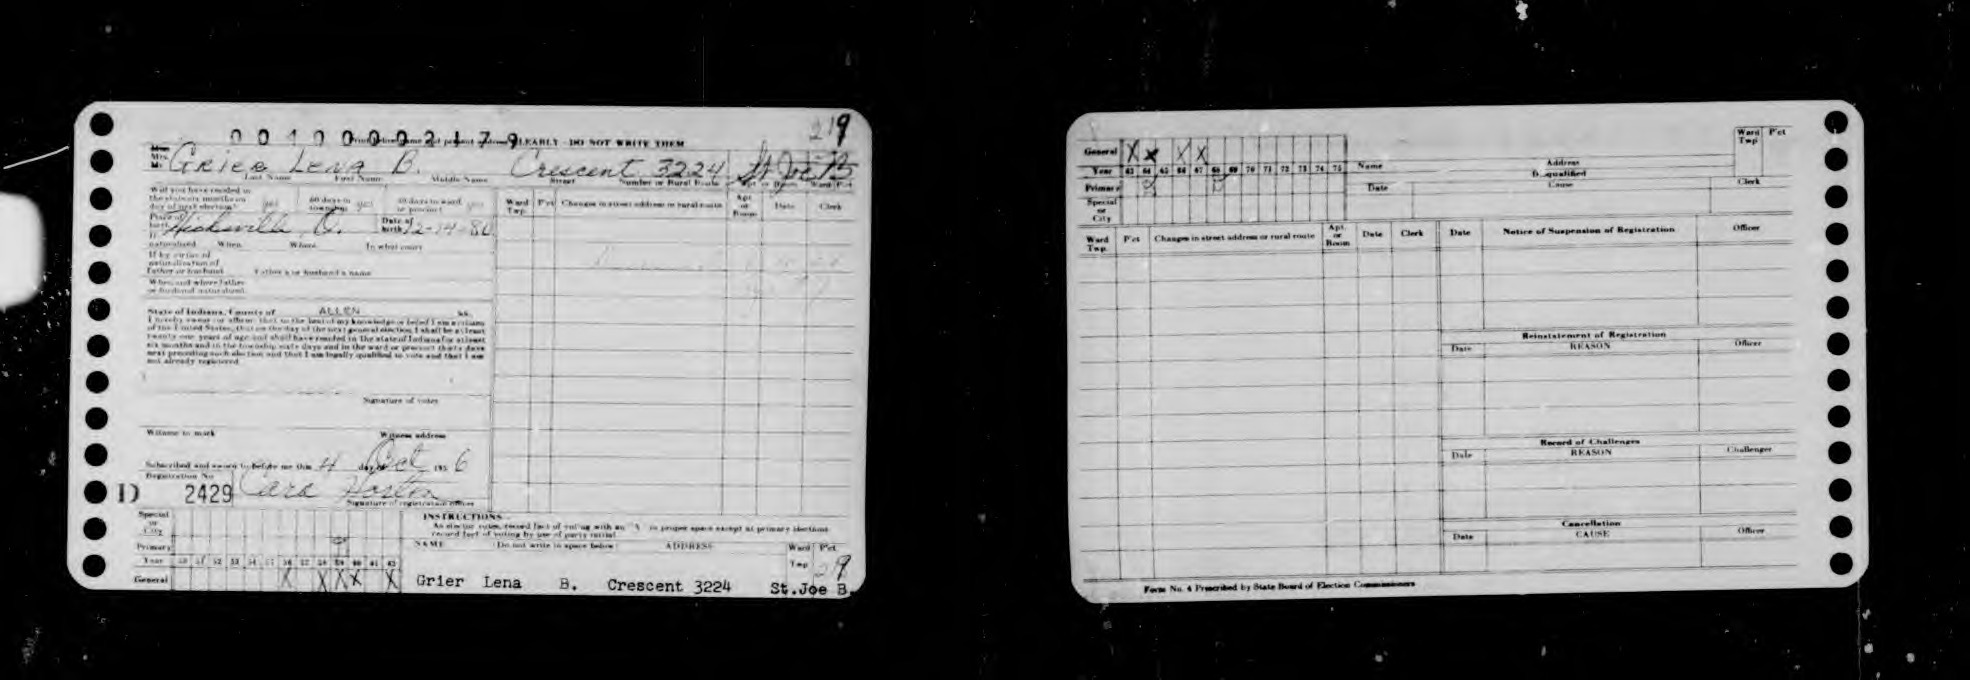 219
00400002179
Print below name and present address CLEARLY - DO NOT WRITE THEM
Mrs. Grier Lena B. Crescent 3224 St Joe B
Last Name First Name Middle Name Street Number or Rural Route Apt. or Room Ward Pct
Will you have resided in the state six months on day of next election? yes 60 days in township yes 30 days in ward or precinct yes
Ward Twp. P'ct Changes in street address or rural route Apt. or Room Date Clerk
Place of birth Hicksville, O. Date of birth 12-14-80
If naturalized When Where In what court
If by virtue of naturalization of father or husband Father's or husband's name
When and where father or husband naturalized
State of Indiana, County of ALLEN ss.
I hereby swear (or affirm) that to the best of my knowledge or belief I am a citizen
of the United States, that on the day of the next general election, I shall be at least
twenty one years of age and shall have resided in the state of Indiana for at least
six months and in the township sixty days and in the ward or precinct thirty days
next preceding such election and that I am legally qualified to vote and that I am
not already registered
Signature of voter
Witness to mark Witness address
Subscribed and sworn to before me this 4 day of Oct 1956
Registration No
D 2429 Cara Horton
Signature of registration officer
Special or City
Primary
Year 50 51 52 53 54 55 56 57 58 59 60 61 62
General X X X X X
INSTRUCTIONS
As elector votes, record fact of voting with an "X" in proper space except at primary elections
record fact of voting by use of party initial
NAME (Do not write in space below) ADDRESS Ward Twp P'ct
219
Grier Lena B. Crescent 3224 St.Joe B.
General X X X X
Year 63 64 65 66 67 68 69 70 71 72 73 74 75
Primary
Special or City
Name Address Ward Twp P'ct
Disqualified
Date Cause Clerk
Ward Twp. P'ct Changes in street address or rural route Apt. or Room Date Clerk
Date Notice of Suspension of Registration Officer
Reinstatement of Registration
Date REASON Officer
Record of Challenges
Date REASON Challenger
Cancellation
Date CAUSE Officer
Form No. 4 Prescribed by State Board of Election Commissioners